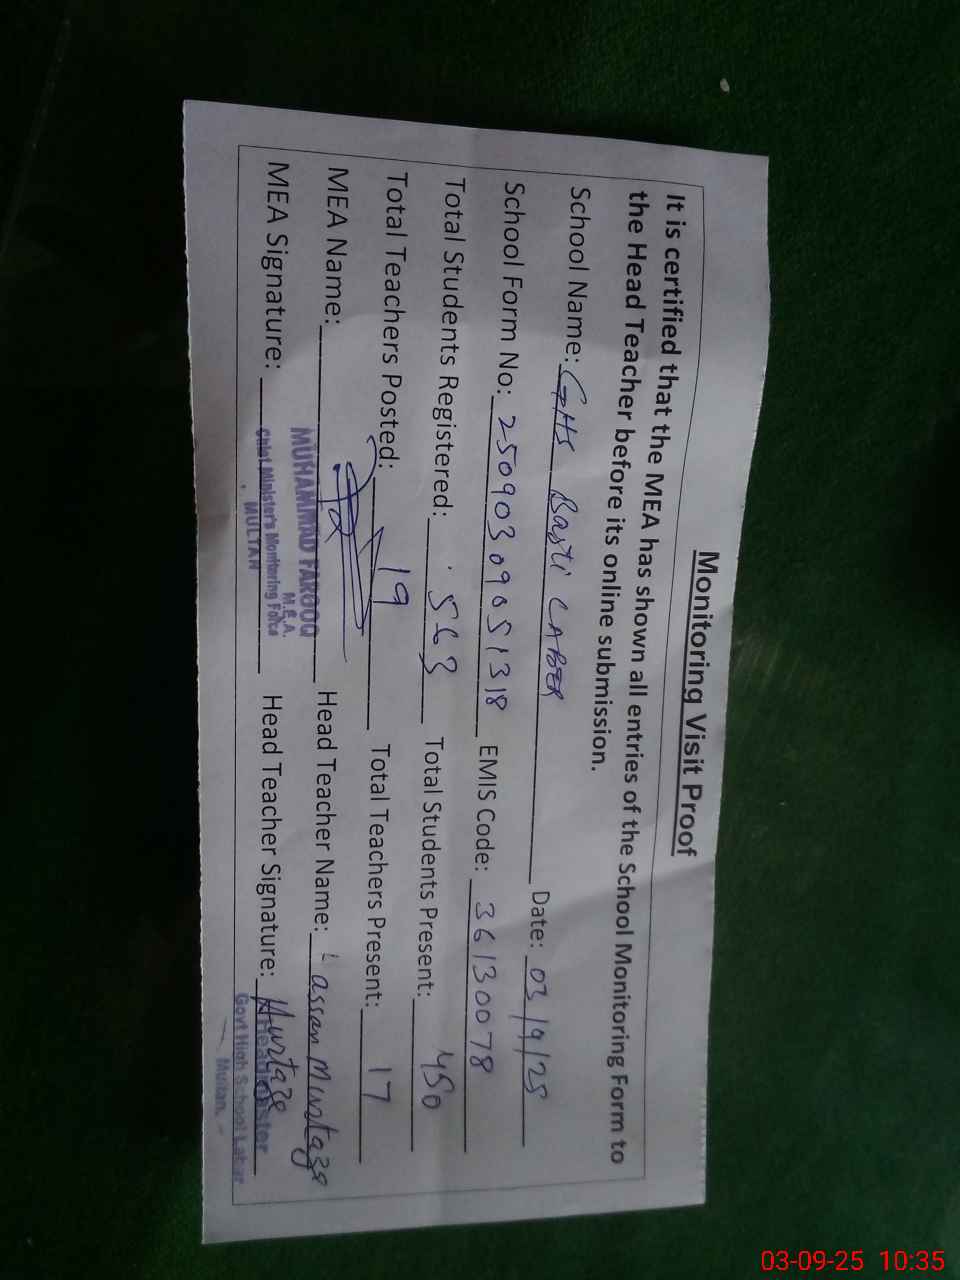 Monitoring Visit Proof
It is certified that the MEA has shown all entries of the School Monitoring Form to
the Head Teacher before its online submission.
School Name: GHS Basti LABER Date: 03/9/25
School Form No: 25090309051318 EMIS Code: 36130078
Total Students Registered: 563 Total Students Present: 450
Total Teachers Posted: 19 Total Teachers Present: 17
MEA Name: Head Teacher Name: Hassan Murtaza
MUHAMMAD FAROOQ
M.E.A.
MEA Signature: Chief Minister's Monitoring Force Head Teacher Signature: Murtaza
MULTAN
Headmaster
Govt High School Labar
Multan.
03-09-25 10:35